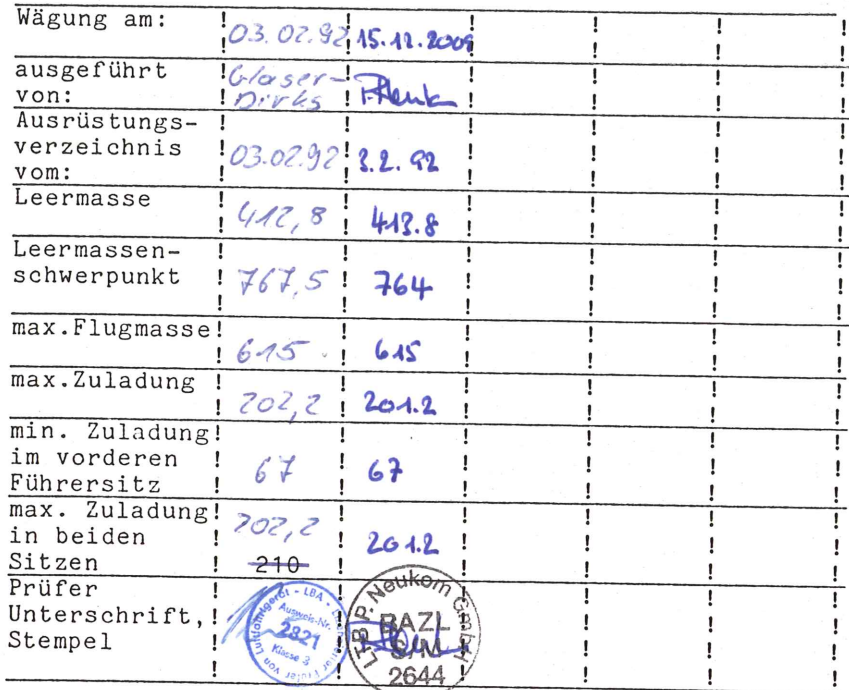 Wägung am: 03.02.92 15.12.2009
ausgeführt Glaser-
von: Dirks
Ausrüstungs-
verzeichnis 03.02.92 3.2.92
vom:
Leermasse 412,8 413.8
Leermassen-
schwerpunkt 767,5 764
max.Flugmasse 615 615
max.Zuladung 202,2 201.2
min. Zuladung
im vorderen 67 67
Führersitz
max. Zuladung 202,2
in beiden 201.2
Sitzen 210
Prüfer
Unterschrift,
Stempel
LBA
Ausweis-Nr.
2821
Klasse 3
LTB P. Neukom GmbH
BAZL
2644